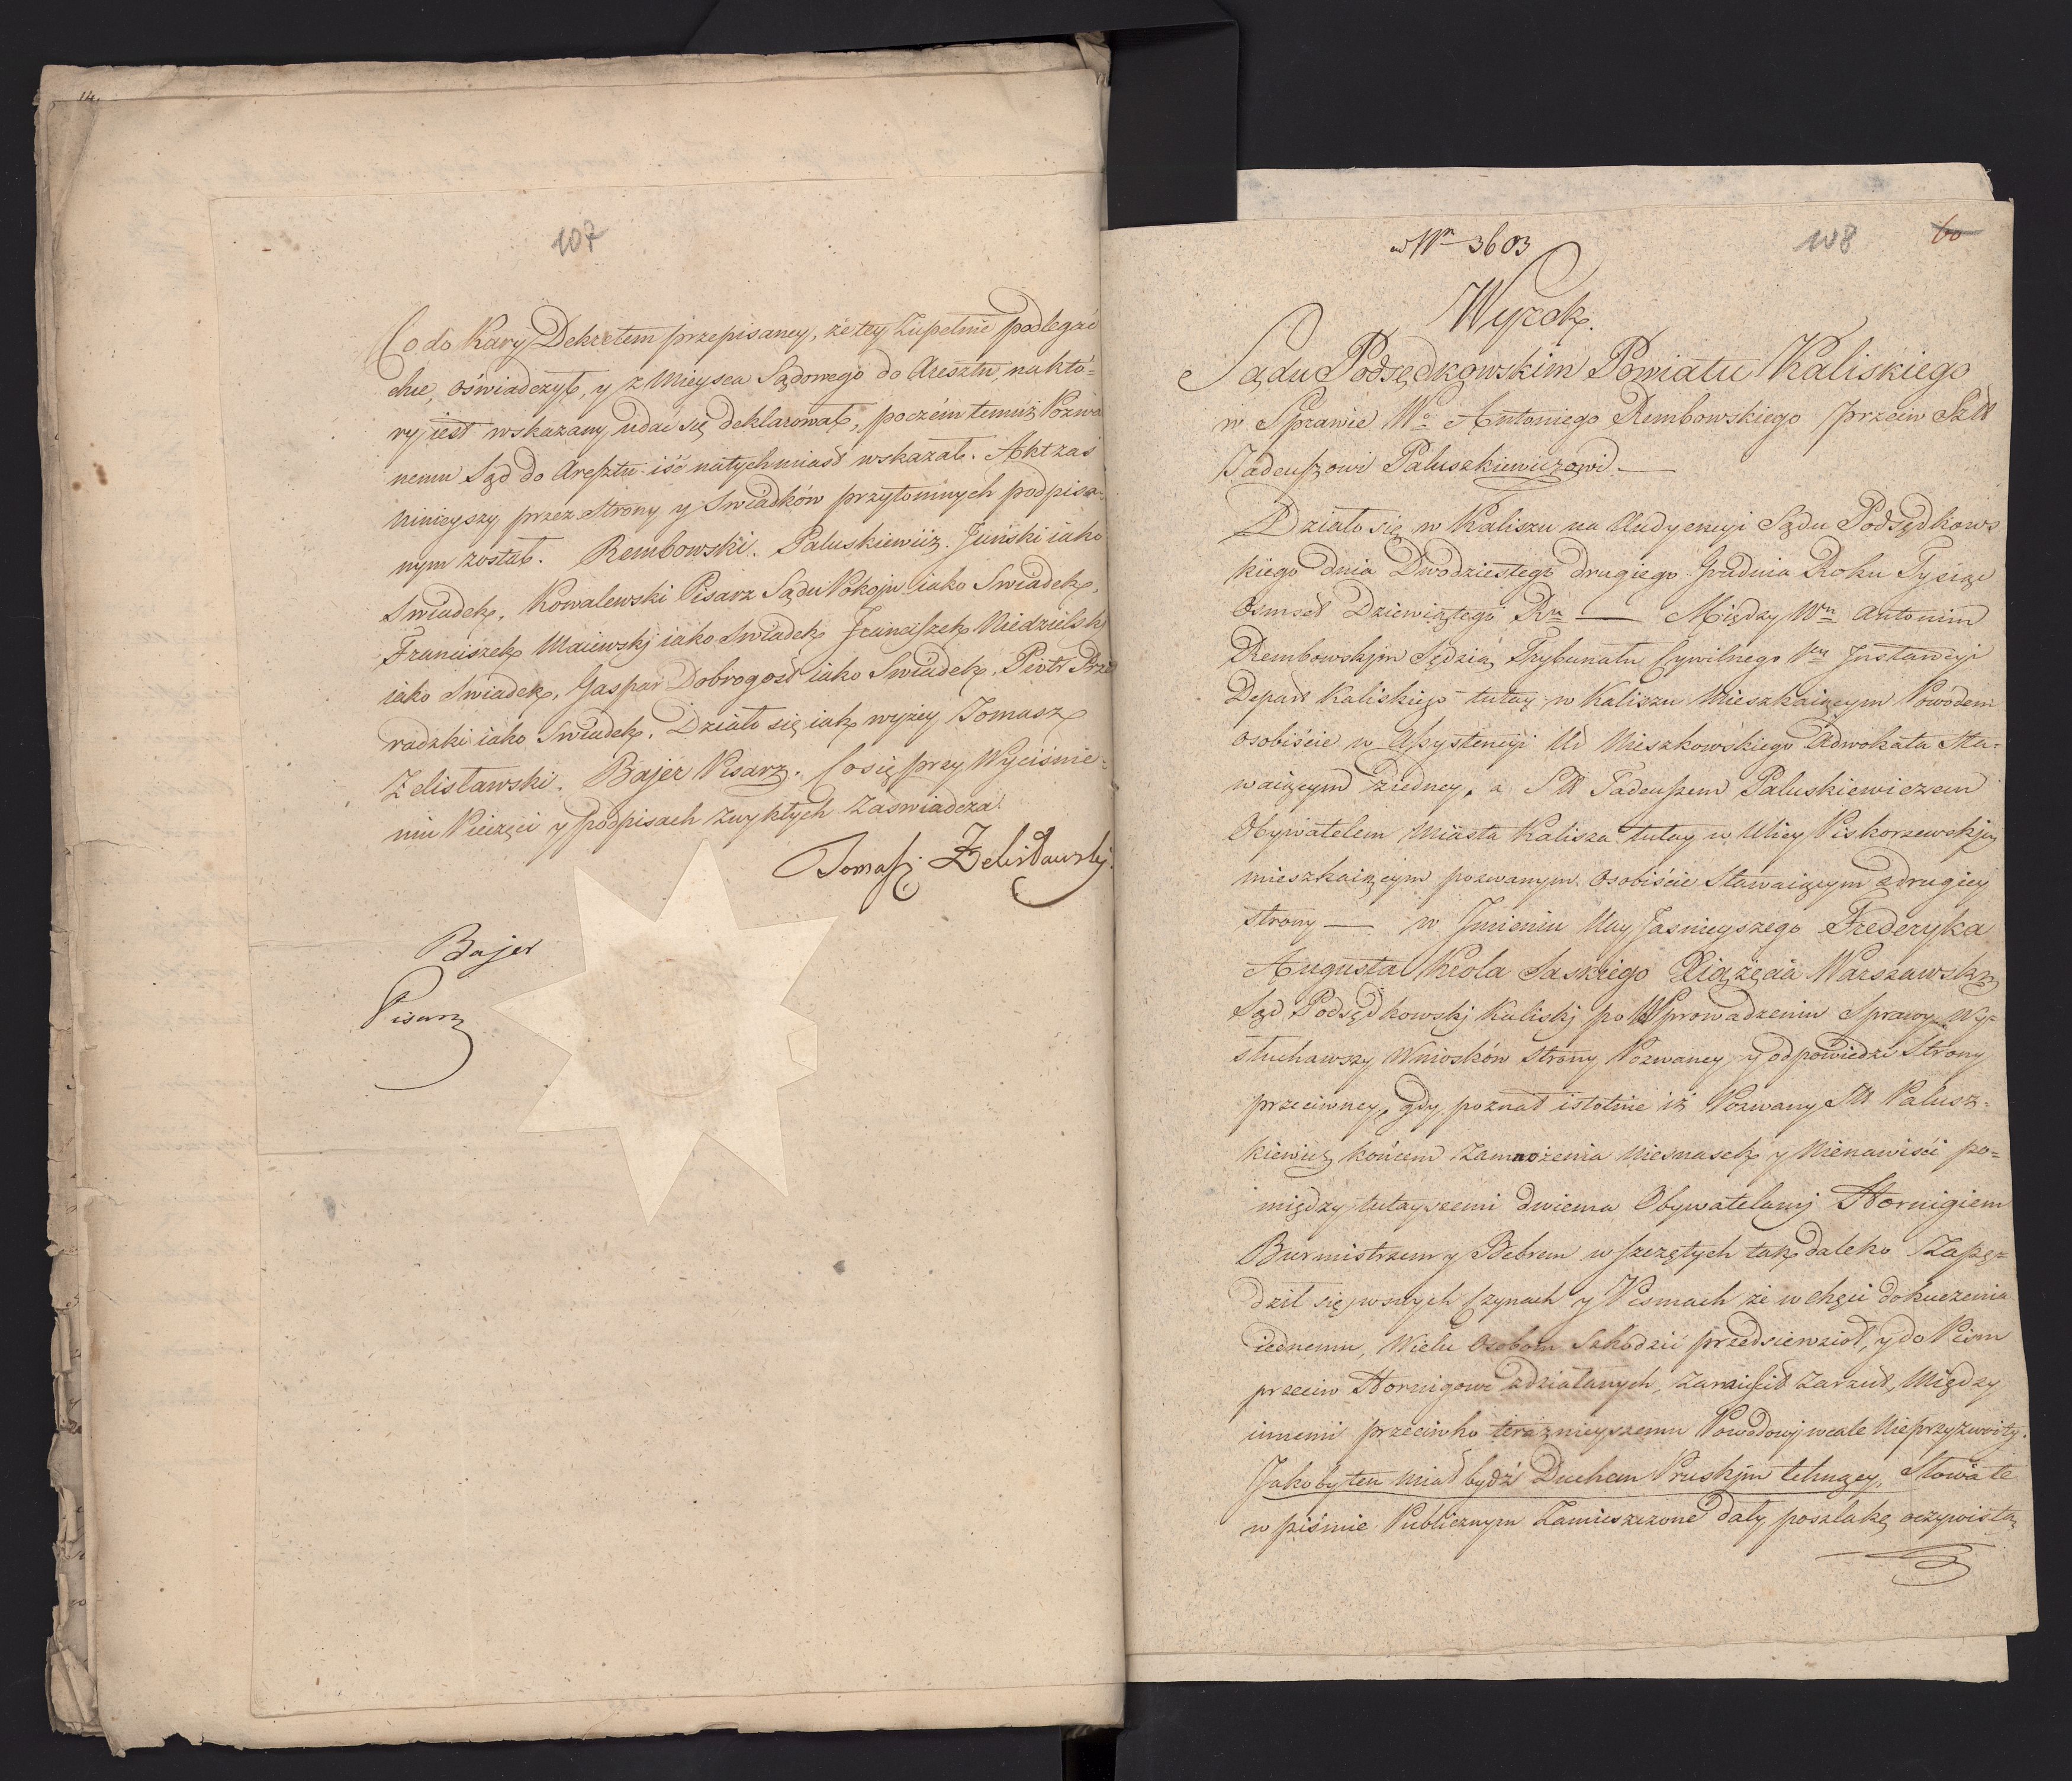 14.
107
Co do Kary Dekretem przepisaney, że tey Zupełnie podlegać
chce, oświadczył, y z Mieysca Sądowego do Aresztu, na któ-
ry iest wskazany udać się deklarował, poczém temuż Pozwa
nemu Sąd do Aresztu iść natychmiast wskazał. Akt zaś
Ninieyszy przez Strony y Swiadków przytomnych podpisa-
nym został. Rembowski. Paluskiewicz. Juński iako
Swiadek, Kowalewski Pisarz Sądu Pokoju iako Swiadek,
Franciszek Maiewskj iako Swiadek Franciszek Niedzielskj
iako Swiadek, Gaspar Dobrogost iako Swiadek, Piotr
radzki iako Swiadek. Działo się iak wyżey Tomasz
Żelisławski. Bajer Pisarz. Co się przy Wyciśnie-
niu Pieczęci y podpisach zwykłych Zaswiadcza.
Tomasz Żelisławskj.
Bajer
Pisarz
w Nn 3603
108
60
Wyrok.
Sądu Podsędkowskim Powiatu Kaliskiego
w Sprawie Wo Antoniego Rembowskiego przeciw
Tadeuszowi Paluszkiewiczowi.
Działo się w Kaliszu na Audyencyi Sądu Podsędkows
kiego dnia Dwodziestego drugiego Grudnia Roku Tysiąc
Osmset Dziewiątego Ru — Między Wm Antonim
Rembowskjm Sędzią Trybunału Cywilnego Instancyi
Depart Kaliskiego tutay w Kaliszu Mieszkaiącym Powodem
osobiście w Assystencyi Ur Mieszkowskiego Adwokata Sta-
waiącym ziedney, a Tadeuszem Paluskiewiczem
Obywatelem Miasta Kalisza tutay w Ulicy Piskorzewskjey
mieszkaiącym pozwanym Osobiście Stawaiącym zdrugiey
Strony — w Jmieniu Nay Jasnieyszego Frederyka
Augusta Króla Saskiego Xiążęcia Warszawskgo
Sąd Podsędkowskj Kaliskj po Wprowadzeniu Sprawy Wy-
słuchawszy Wniosków Strony Pozwaney y odpowiedzi Strony
przeciwney, gdy poznał istotnie iż Pozwany Palusz-
kiewicz końcem Zamnożenia Niesnasek y Nienawiści po-
między tutayszemi dwiema Obywatelamj Hornigiem
Burmistrzem y Bebrem wszczętych tak daleko Zapę-
dził się wswych Czynach y Pismach że w chęci dokuczenia
iednemu, Wielu Osobom Szkodzić przedsiewzioł, y do Pism
przeciw Hornigowi zdziałanych, Zamieścił Zarzut, Między
innemi przeciwko teraznieyszemu Powodowj wcale Nieprzyzwoity.
Jakoby ten miał bydź Duchem Pruskjm tchnący, Słowa te
w piśmie Publicznym Zamieszczone dały poszlakę oczywistą